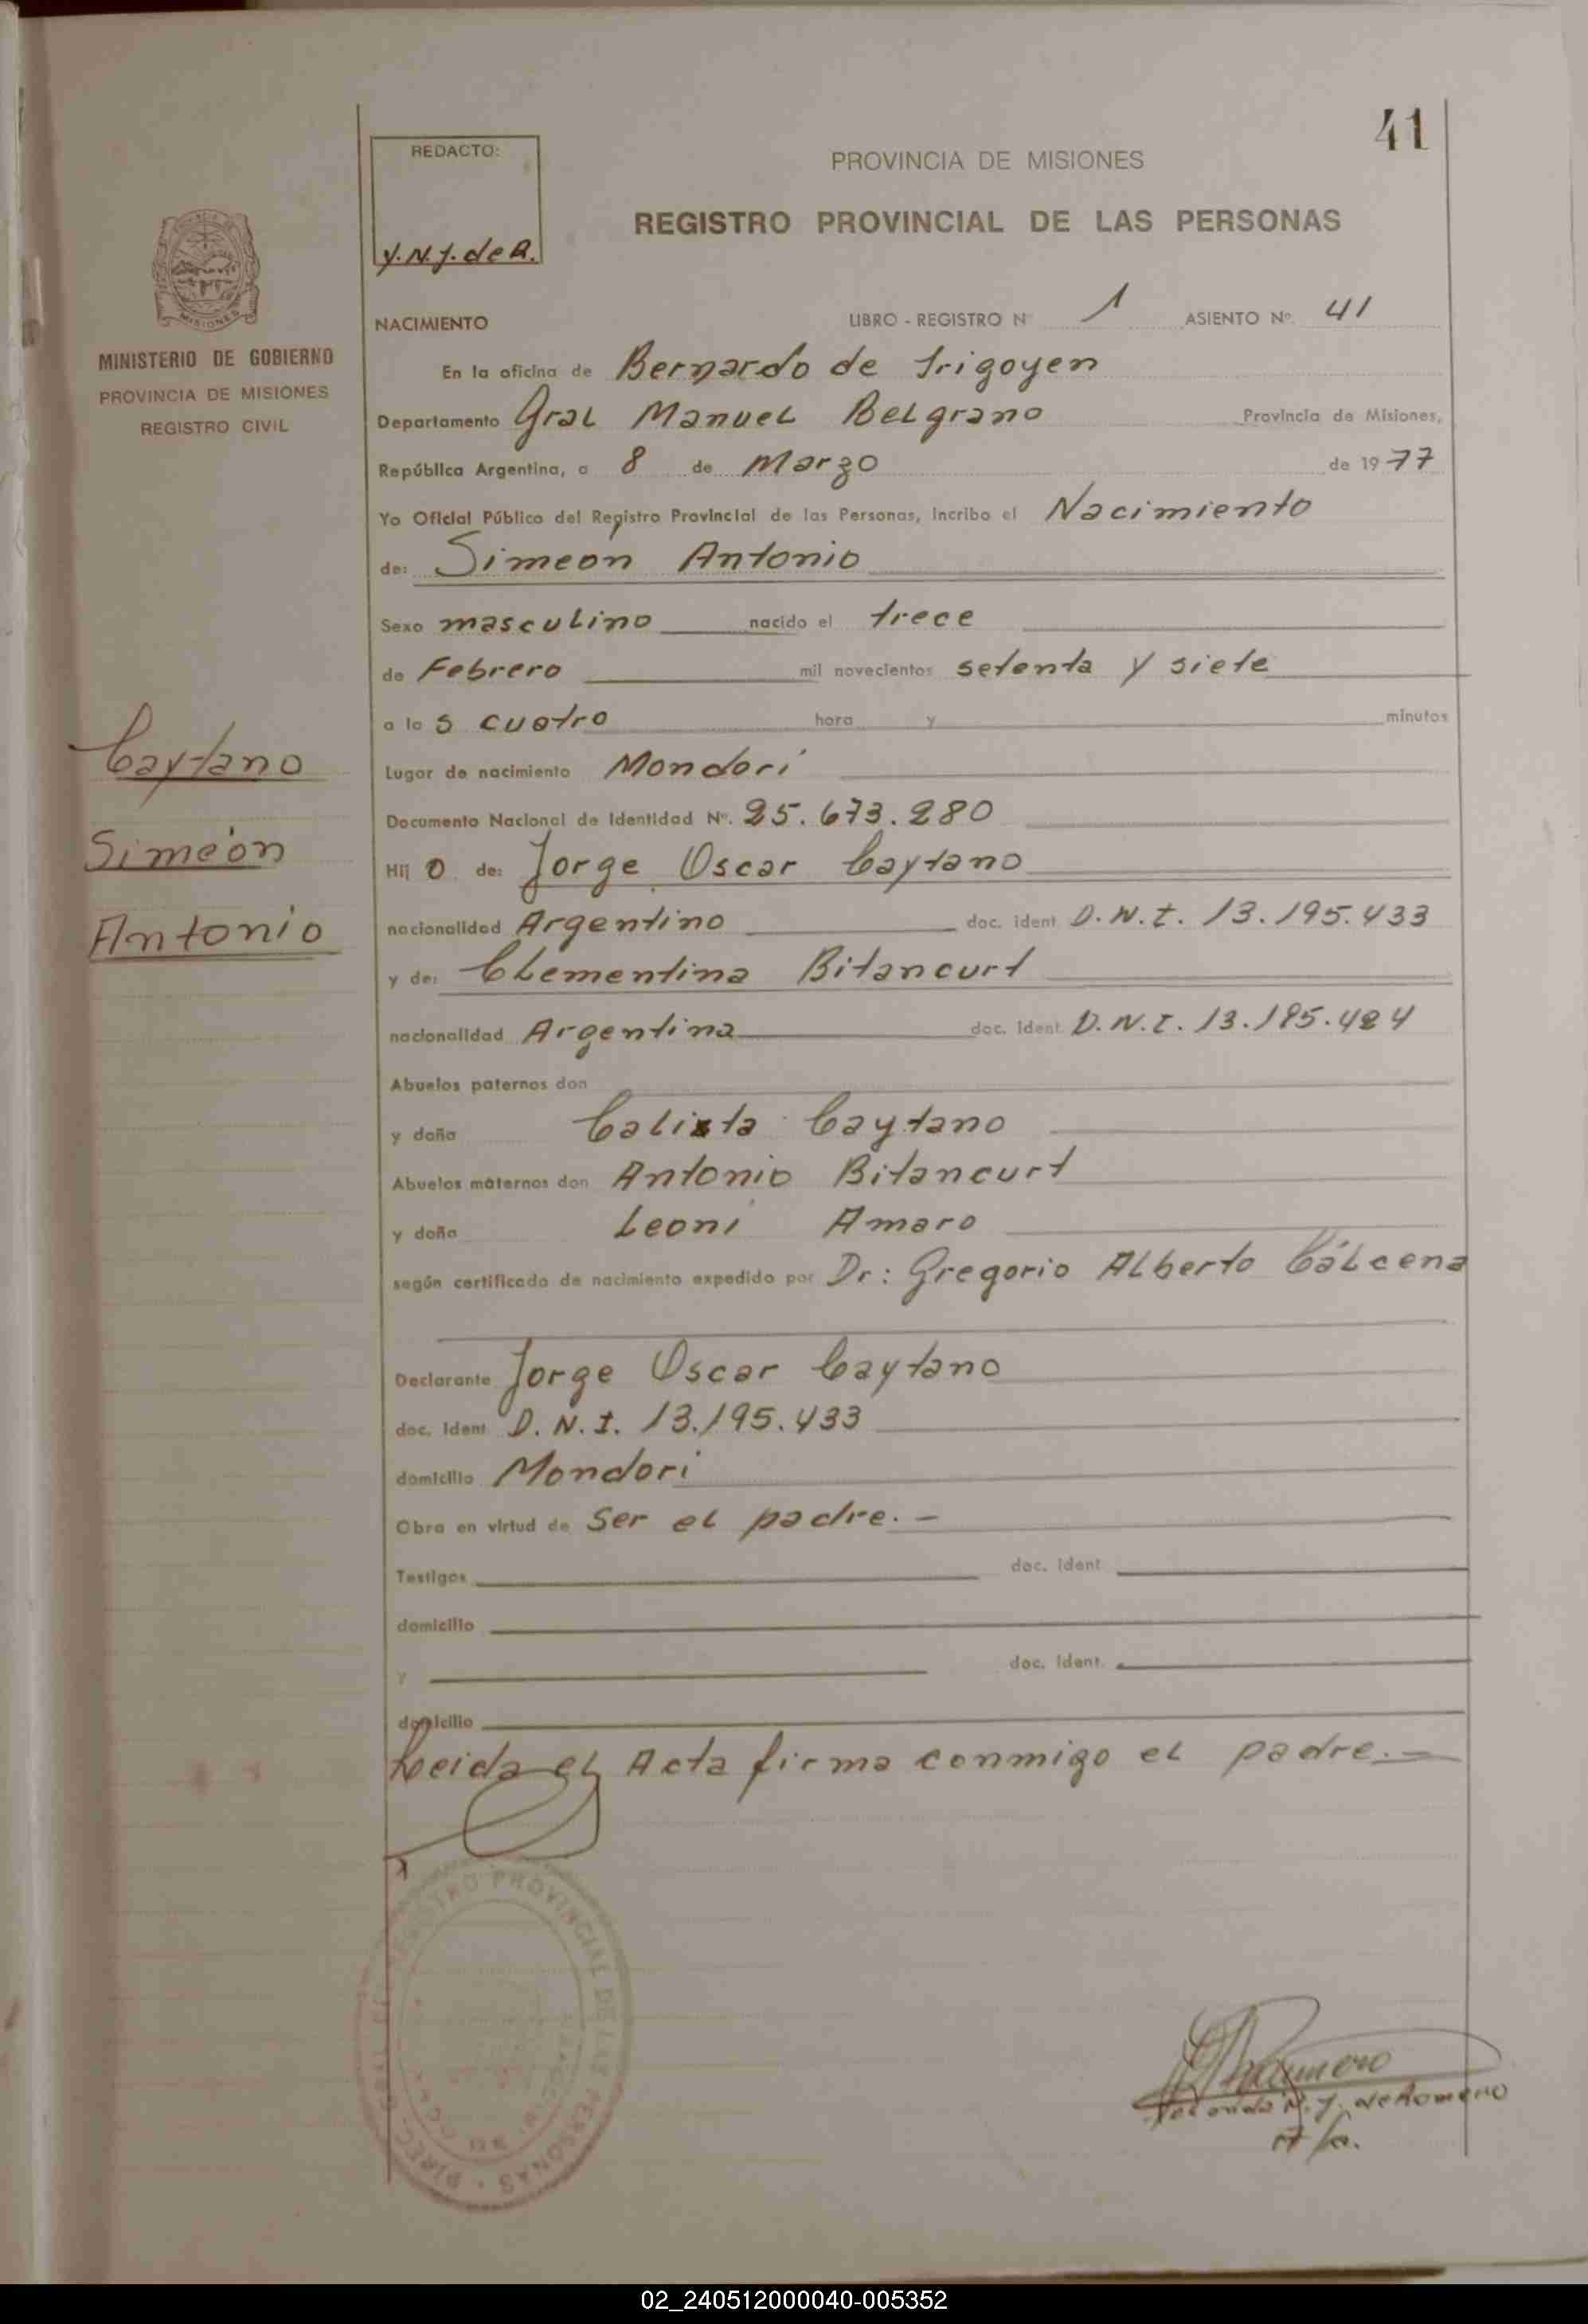 41
REDACTO:
Y.N.J. de R.
PROVINCIA DE MISIONES
REGISTRO PROVINCIAL DE LAS PERSONAS
MISIONES
MINISTERIO DE GOBIERNO
PROVINCIA DE MISIONES
REGISTRO CIVIL
NACIMIENTO LIBRO - REGISTRO N 1 ASIENTO Nº. 41
En la oficina de Bernardo de Irigoyen
Departamento Gral Manuel Belgrano Provincia de Misiones,
República Argentina, a 8 de Marzo de 1977
Yo Oficial Público del Registro Provincial de las Personas, Incribo el Nacimiento
de: Simeon Antonio
Sexo masculino nacido el trece
de Febrero mil novecientos setenta y siete
a las cuatro hora y minutos
Lugar de nacimiento Mondori
Documento Nacional de Identidad Nº. 25.673.280
Hijo de: Jorge Oscar Caytano
nacionalidad Argentino doc. ident D.N.I. 13.195.433
y de: Clementina Bitancurt
nacionalidad Argentina doc. Ident D.N.I. 13.195.424
Abuelos paternos don
y doña Calixta Caytano
Abuelos maternos don Antonio Bitancurt
y doña Leoni Amaro
según certificado de nacimiento expedido por Dr: Gregorio Alberto Cálcena
Declarante Jorge Oscar Caytano
doc. Ident D.N.I. 13.195.433
domicilio Mondori
Obra en virtud de Ser el padre.-
Testigos doc. Ident
domicilio
y doc. Ident.
domicilio
Leida el Acta firma conmigo el padre.=
Caytano
Simeón
Antonio
REGISTRO PROVINCIAL DE LAS PERSONAS
N. J. de Romero
02_240512000040-005352